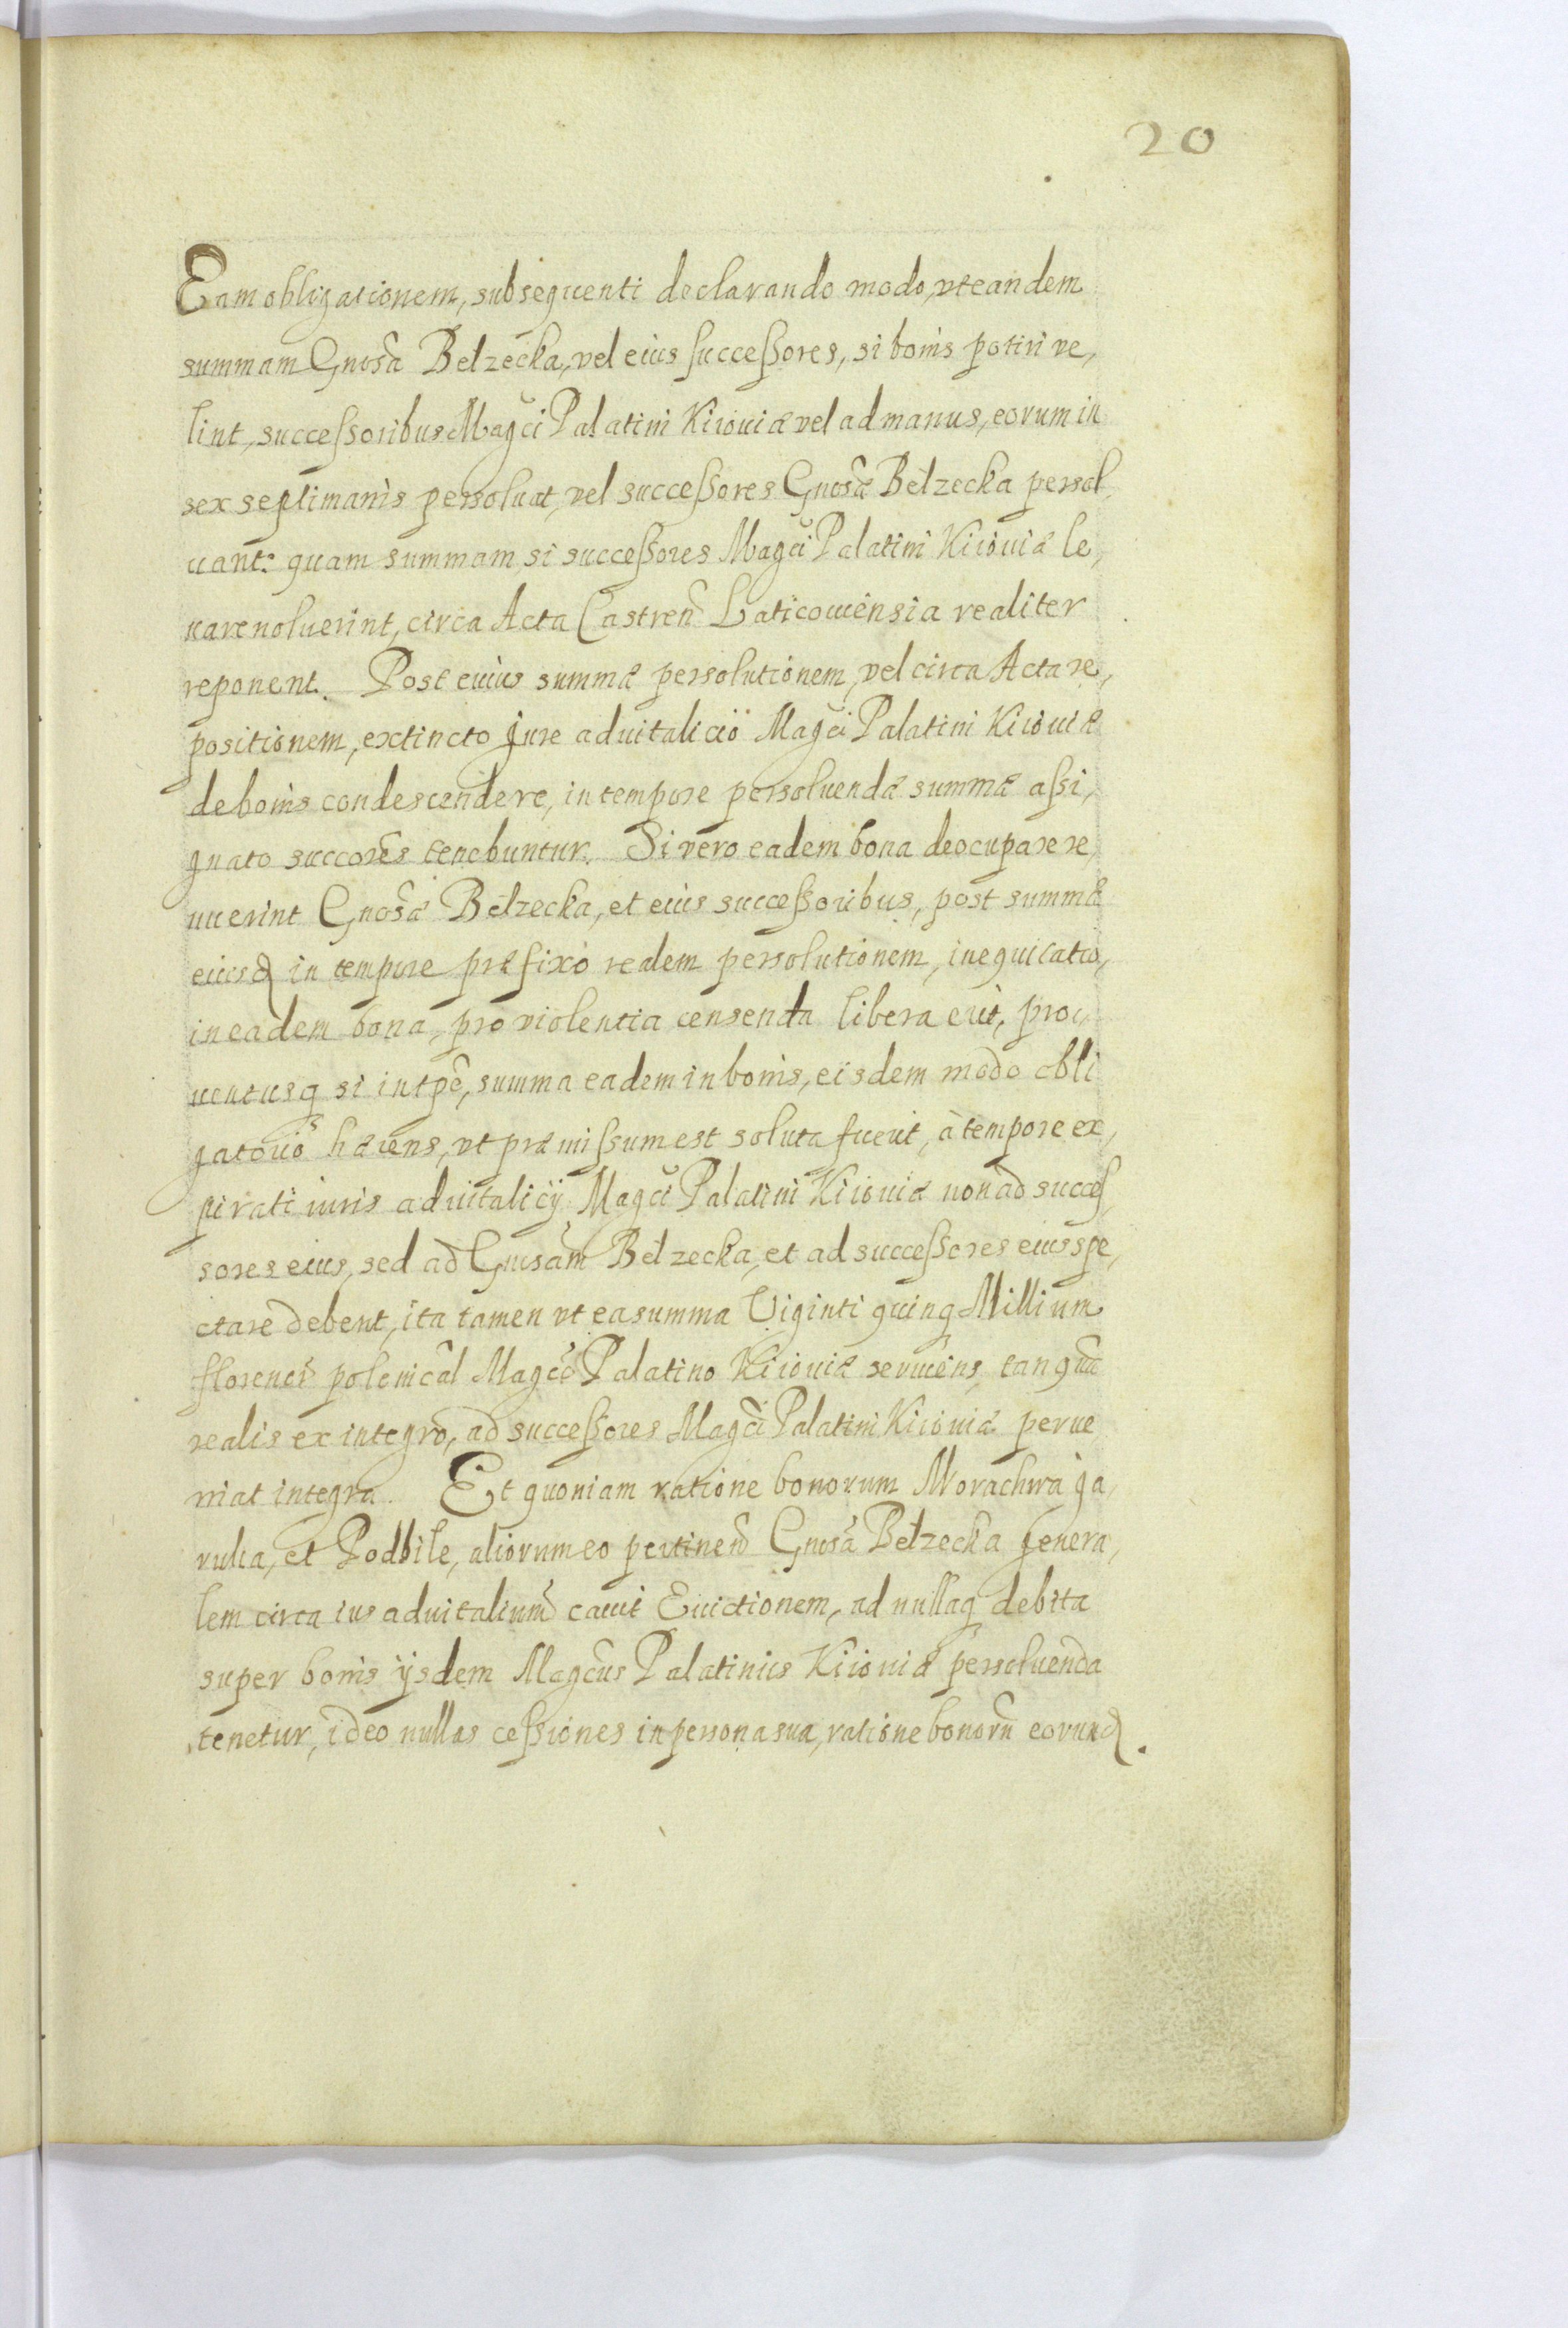 20
Eam obligationem, subsequenti declarando modo, vt eandem
summam Gnosã Belzecka, vel eius successores, si bonis potiri ve,
lint, successoribus Magci Palatini Kiiouiæ vel ad manus, eorum in
sex septimanis persoluat, vel successores Gnosæ Belzecka persol,
uant: quam summam, si successores Magci Palatini Kiiouiæ le,
uare noluerint, circa Acta Castren̄ Laticouiensia realiter
reponent. Post cuius summæ persolutionem, vel circa Acta re,
positionem, extincto jure aduitalicio Magci Palatini Kiiouiæ
de bonis condescendere, in tempore persoluendæ summæ assi,
gnato succores̄ tenebuntur. Si vero eadem bona deocupare re,
nuerint Gnosæ Belzecka, et eius successoribus, post summæ
eiusd in tempore præfixo realem persolutionem, inequitatio,
in eadem bona, pro violentia censenda libera erit, pro,
uentusq si intpē, summa eadem in bonis, eisdem modo obli
gatorio hærens, vt præmissum est soluta fuerit, à tempore ex,
pirati iuris aduitalicij Magci Palatini Kiiouiæ non ad succes,
sores eius, sed ad Gnosam̄ Belzecka, et ad successores eius spe,
ctare debent, ita tamen vt ea summa Viginti quinq Millium
florenor̄ polonical̄ Magco Palatino Kiiouiæ seruiens, tanquā
realis ex integro, ad successores Magci Palatini Kiiouiæ perue
niat integra. Et quoniam ratione bonorum Morachwa ja,
rulia, et Podbile, aliorum eo pertinen̄ Gnosã Belzecka genera,
lem circa ius aduitalium̄ cauit Euictionem, ad nullaq debita
super bonis ijsdem Magcus Palatinus Kiiouiæ persoluenda
tenetur, ideo nullas cessiones in persona sua, ratione bonorū eorund.